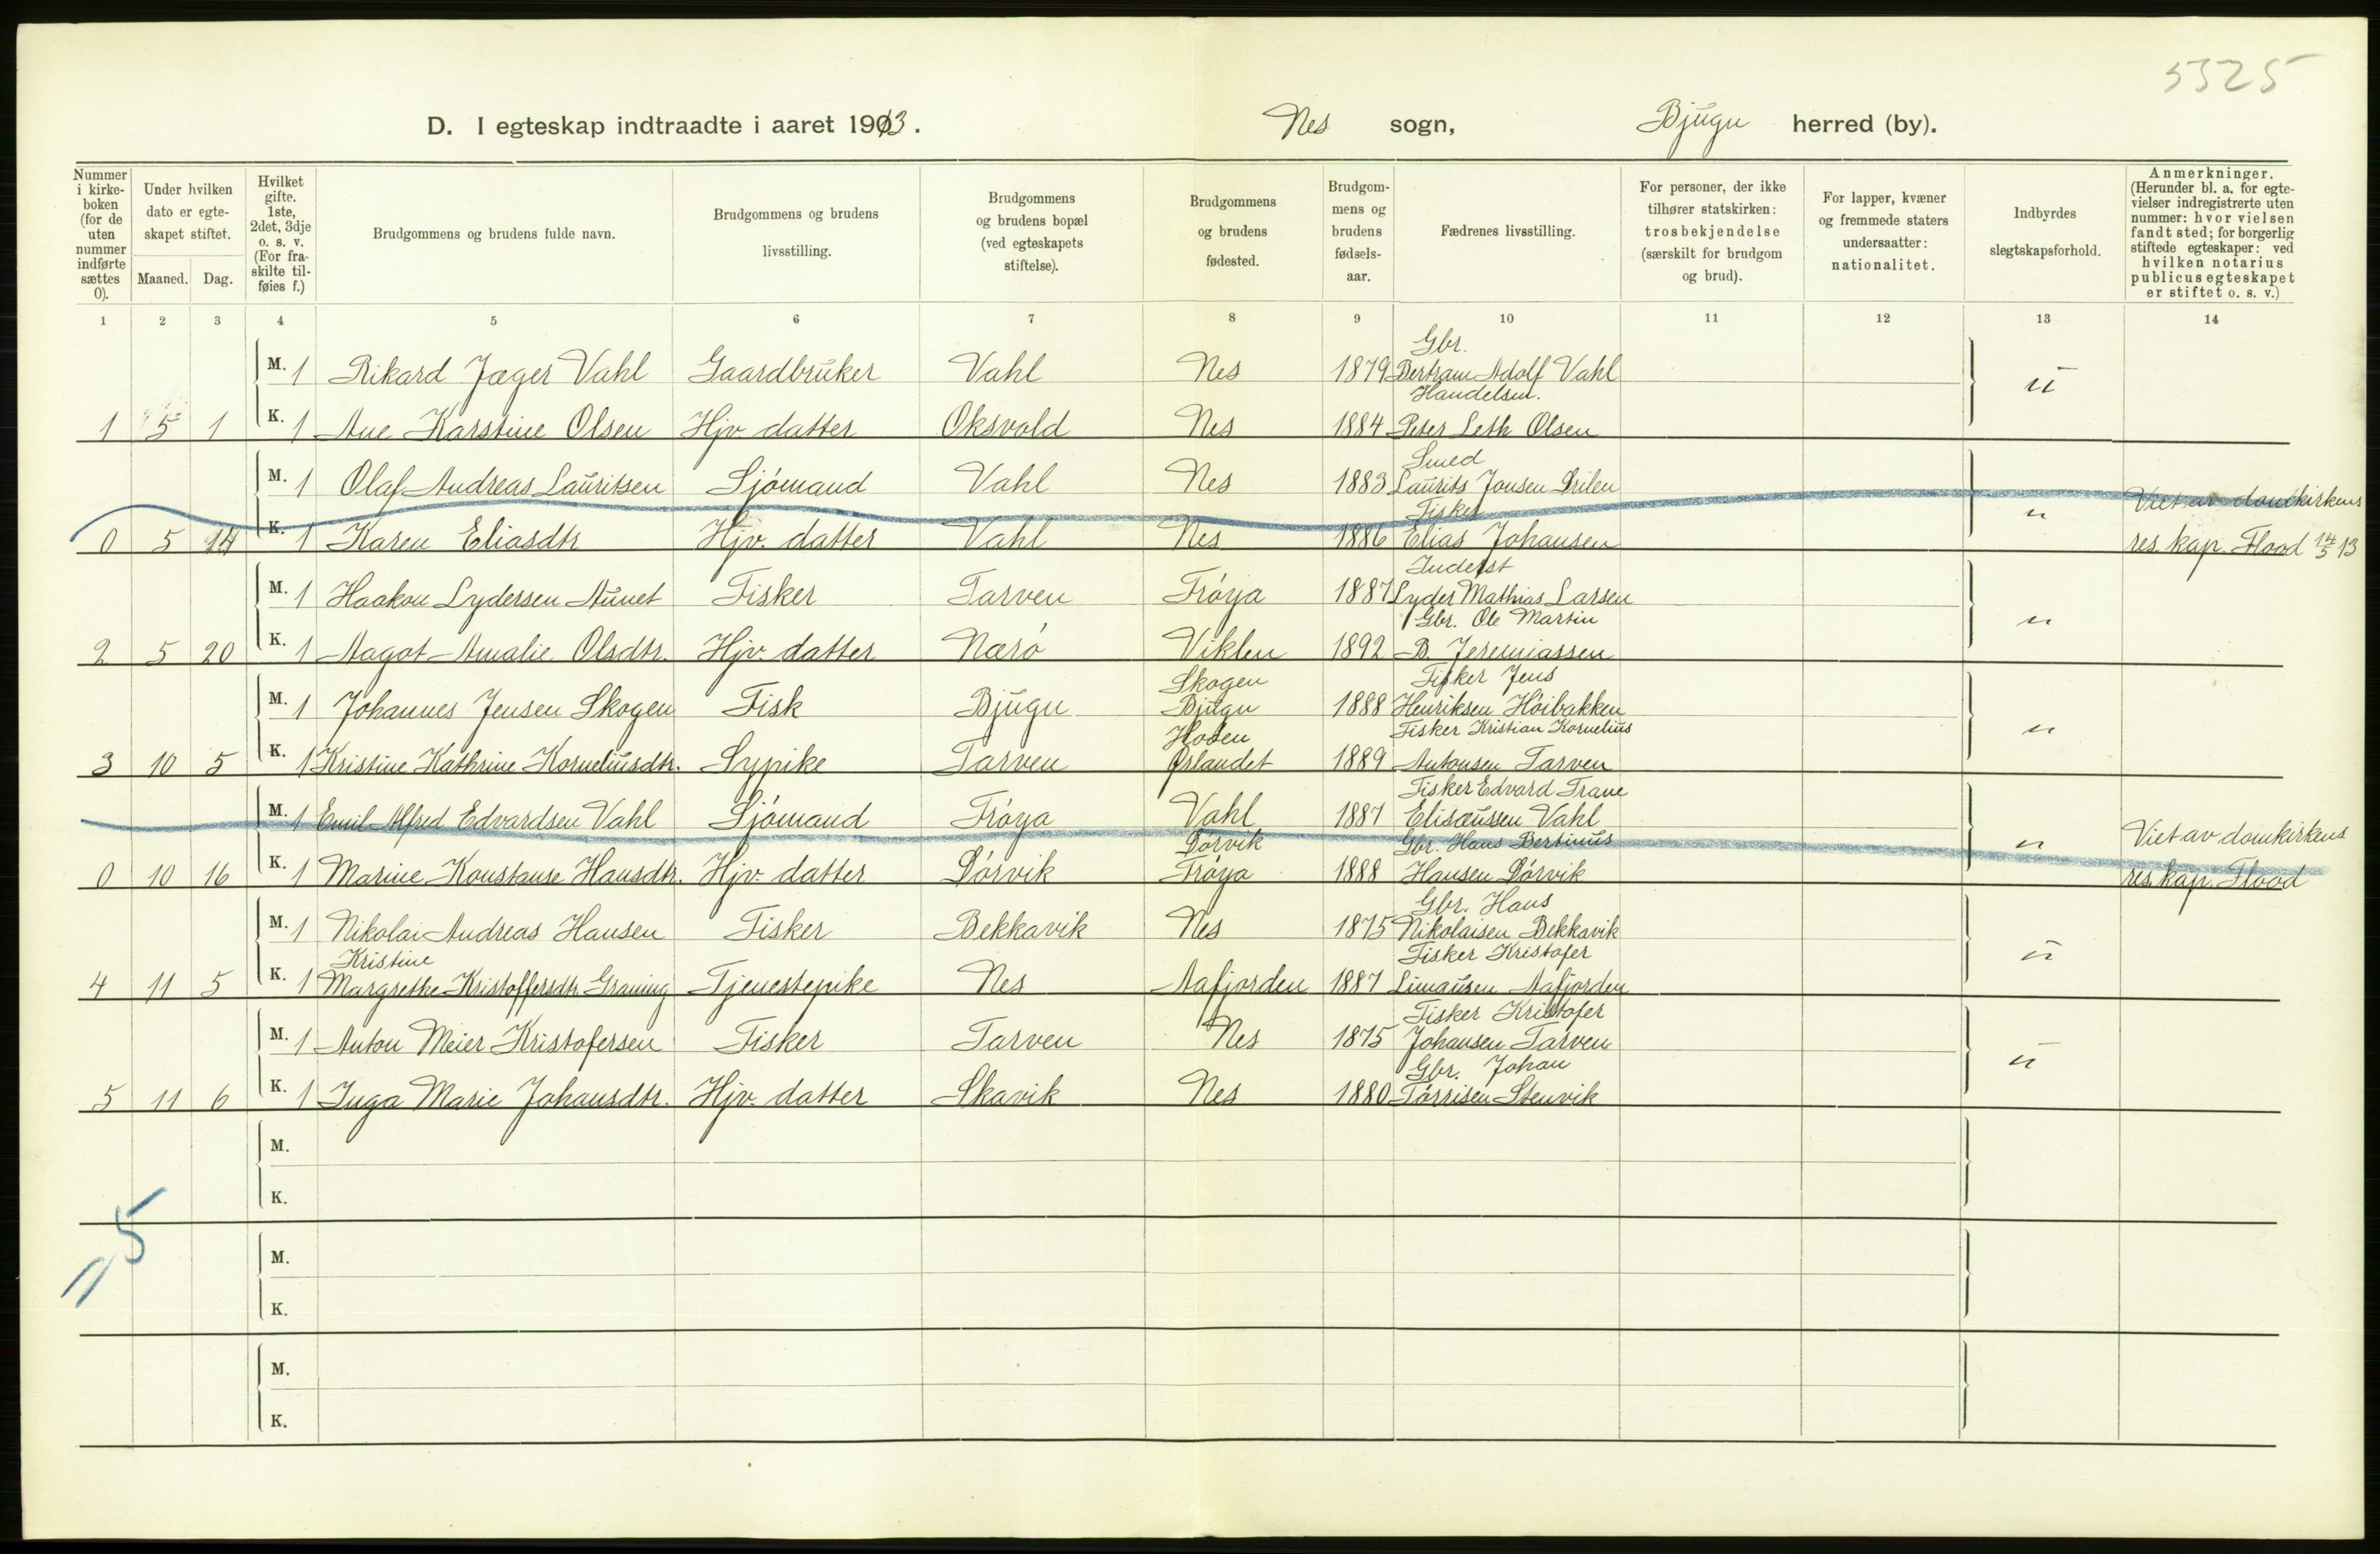 5525
D. I egteskap indtraadte i aaret 1913. Nes sogn, Bjugn herred (by).
Nummer i kirkeboken (for de uten nummer indførte sættes 0).
Under hvilken dato er egteskapet stiftet.
Maaned. Dag.
Hvilket gifte. 1ste, 2det, 3dje o. s. v. (For fraskilte tilføies f.)
Brudgommens og brudens fulde navn.
Brudgommens og brudens livsstilling.
Brudgommens og brudens bopæl (ved egteskapets stiftelse).
Brudgommens og brudens fødested.
Brudgommens og brudens fødselsaar.
Fædrenes livsstilling.
For personer, der ikke tilhører statskirken: trosbekjendelse (særskilt for brudgom og brud).
For lapper, kvæner og fremmede staters undersaatter: nationalitet.
Indbyrdes slegtskapsforhold.
Anmerkninger. (Herunder bl. a. for egtevielser indregistrerte uten nummer: hvor vielsen fandt sted; for borgerlig stiftede egteskaper: ved hvilken notarius publicus egteskapet er stiftet o. s. v.)
1 2 3 4 5 6 7 8 9 10 11 12 13 14
M. 1 Rikard Jæger Vahl Gaardbruker Vahl Nes 1879 Gbr. Bertram Adolf Vahl u
1 5 1 K. 1 Ane Karstine Olsen Hjv. datter Oksvold Nes 1884 Handelsm. Peter Leth Olsen
M. 1 Olaf Andreas Lauritsen Sjömand Vahl Nes 1883 Smed Laurits Jonsen Grilen u Viet av domkirkens
0 5 14 K. 1 Karen Eliasdtr Hjv. datter Vahl Nes 1886 Fisker Elias Johansen res. kap. Flood 14/5 13
M. 1 Haakon Lydersen Aunet Fisker Tarven Fröya 1887 Inderst Lyder Mathias Larsen u
2 5 20 K. 1 Aagot Amalie Olsdtr. Hjv. datter Nærö Viklen 1892 Gbr. Ole Martin B. Jeremiassen
M. 1 Johannes Jensen Skogen Fisk Bjugn Skogen Bjugn 1888 Fisker Jens Henriksen Höibakken u
3 10 5 K. 1 Kristine Kathrine Korneliusdtr. Sypike Tarven Hoven Ørlandet 1889 Fisker Kristian Kornelius Antonsen Tarven
M. 1 Emil Alfred Edvardsen Vahl Sjömand Fröya Vahl 1887 Fisker Edvard Trane Elisæussen Vahl u Viet av domkirkens
0 10 16 K. 1 Marine Konstanse Hansdtr. Hjv. datter Dörvik Dörvik Fröya 1888 Gbr. Hans Bertinus Hansen Dörvik res. kap. Flood
M. 1 Nikolai Andreas Hansen Fisker Bekkavik Nes 1875 Gbr. Hans Nikolaisen Bekkavik u
4 11 5 K. 1 Kristine Margrethe Kristoffersdtr Graning Tjenestepike Nes Aafjorden 1887 Fisker Kristofer Simonsen Aafjorden
M. 1 Anton Meier Kristofersen Fisker Tarven Nes 1875 Fisker Kristofer Johansen Tarven u
5 11 6 K. 1 Inga Marie Johansdtr. Hjv. datter Skavik Nes 1880 Gbr. Johan Törrisen Stenvik
M.
K.
M.
K.
M.
K.
5